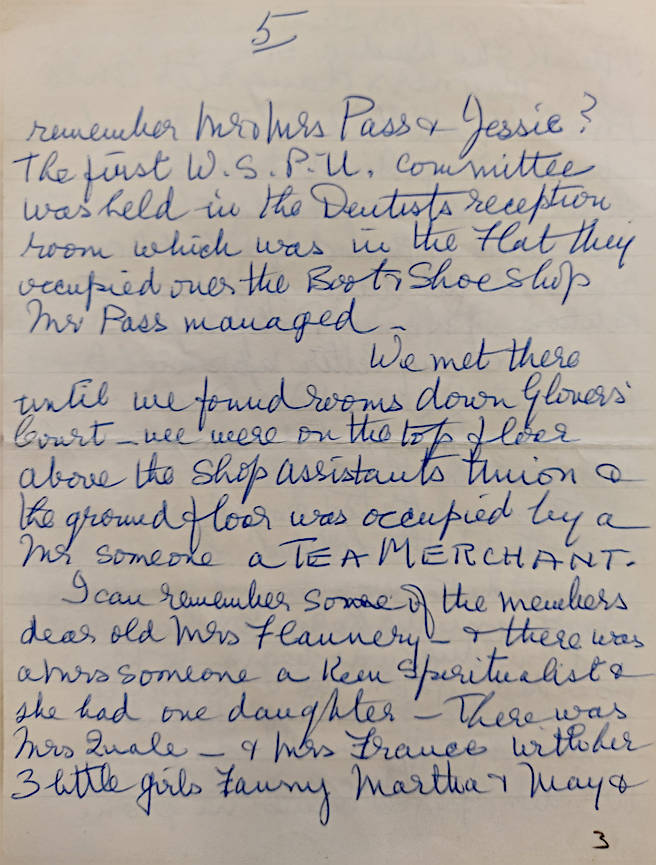 5
remember Mr & Mrs Pass & Jessie?
The first W.S.P.U. committee
was held in the Dentists reception
room which was in the Flat they
occupied over the Boot & Shoe shop
Mr Pass managed —
We met there
until we found rooms down Glovers'
Court — we were on the top floor
above the Shop Assistants Union &
the ground floor was occupied by a
Mr someone a TEA MERCHANT.
I can remember some of the members
dear old Mrs Flannery — & there was
a Mrs someone a keen Spiritualist &
she had one daughter — There was
Mrs Quale — & Mrs France with her
3 little girls Fanny Martha & May &
3